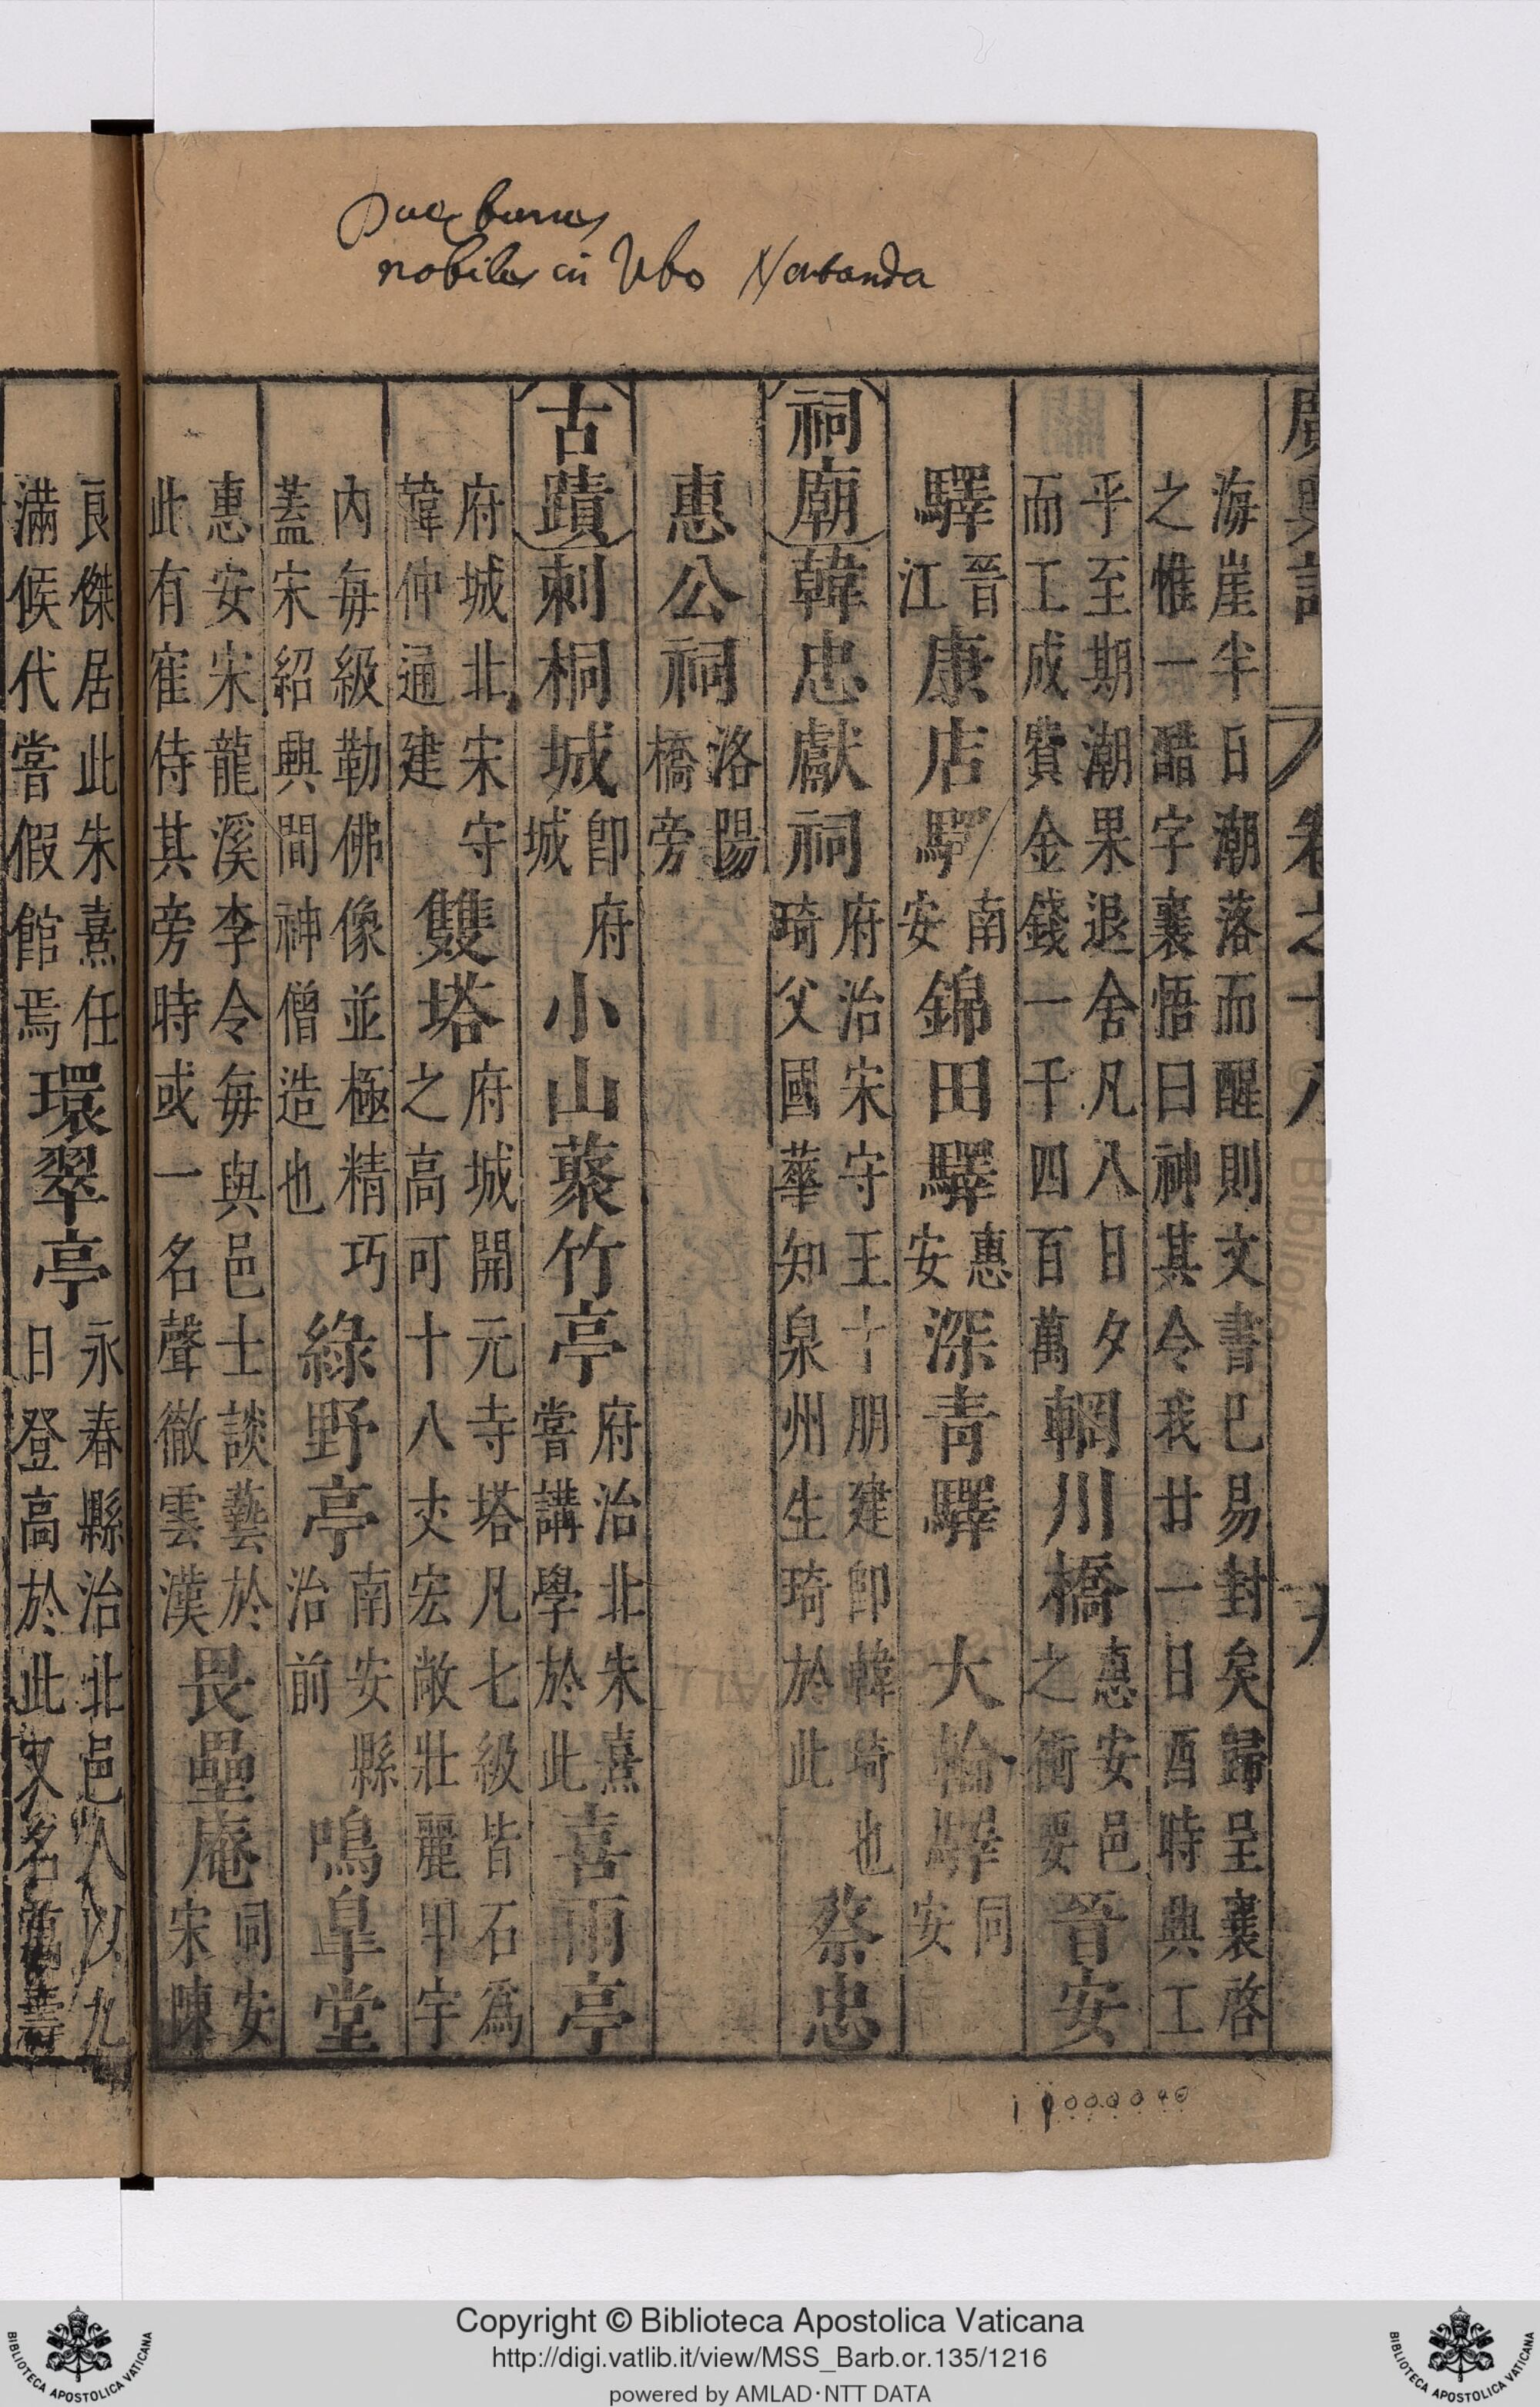 nobiles in
廣輿記 卷之十八 九
海崖半日潮落而醒則文書已易封矣歸呈襄啓之惟一醋字襄悟曰神其令我廿一日酉時典工
乎至期潮果退舍凡八日夕而工成費金錢一千四百萬輞川橋惠安邑之衝要晉安
驛晉江康店驛南安錦田驛惠安深青驛 大輪驛同安
祠廟韓忠獻祠府治宋守王十朋建卽韓琦也琦父國華知泉州生琦於此蔡忠
惠公祠洛陽橋旁
古蹟刺桐城卽府城小山藂竹亭府治北朱熹嘗講學於此喜雨亭
府城北宋守韓仲通建雙塔府城開元寺塔凡七級皆石爲之高可十八丈宏敞壯麗甲宇
內每級勒佛像並極精巧蓋宋紹興間神僧造也綠野亭南安縣治前鳴臯堂
惠安宋龍溪李令每與邑士談藝於此有寉侍其旁時或一名聲徹雲漢畏壘庵同安宋陳
良傑居此朱熹任滿候代嘗假館焉環翠亭永春縣治北邑人以九日登高於此又名萬壽
Copyright © Biblioteca Apostolica Vaticana
http://digi.vatlib.it/view/MSS_Barb.or.135/1216
powered by AMLAD·NTT DATA
BIBLIOTECA APOSTOLICA VATICANA
BIBLIOTECA APOSTOLICA VATICANA